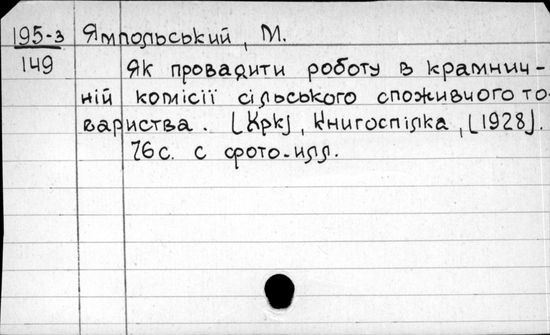 195-з Ямпольський, М.
149 Як провадити роботу в крамнич-
ній комісії сільського споживчого то-
вариства. [Хрк], Книгоспілка, [1928].
76 с. с фото-илл.